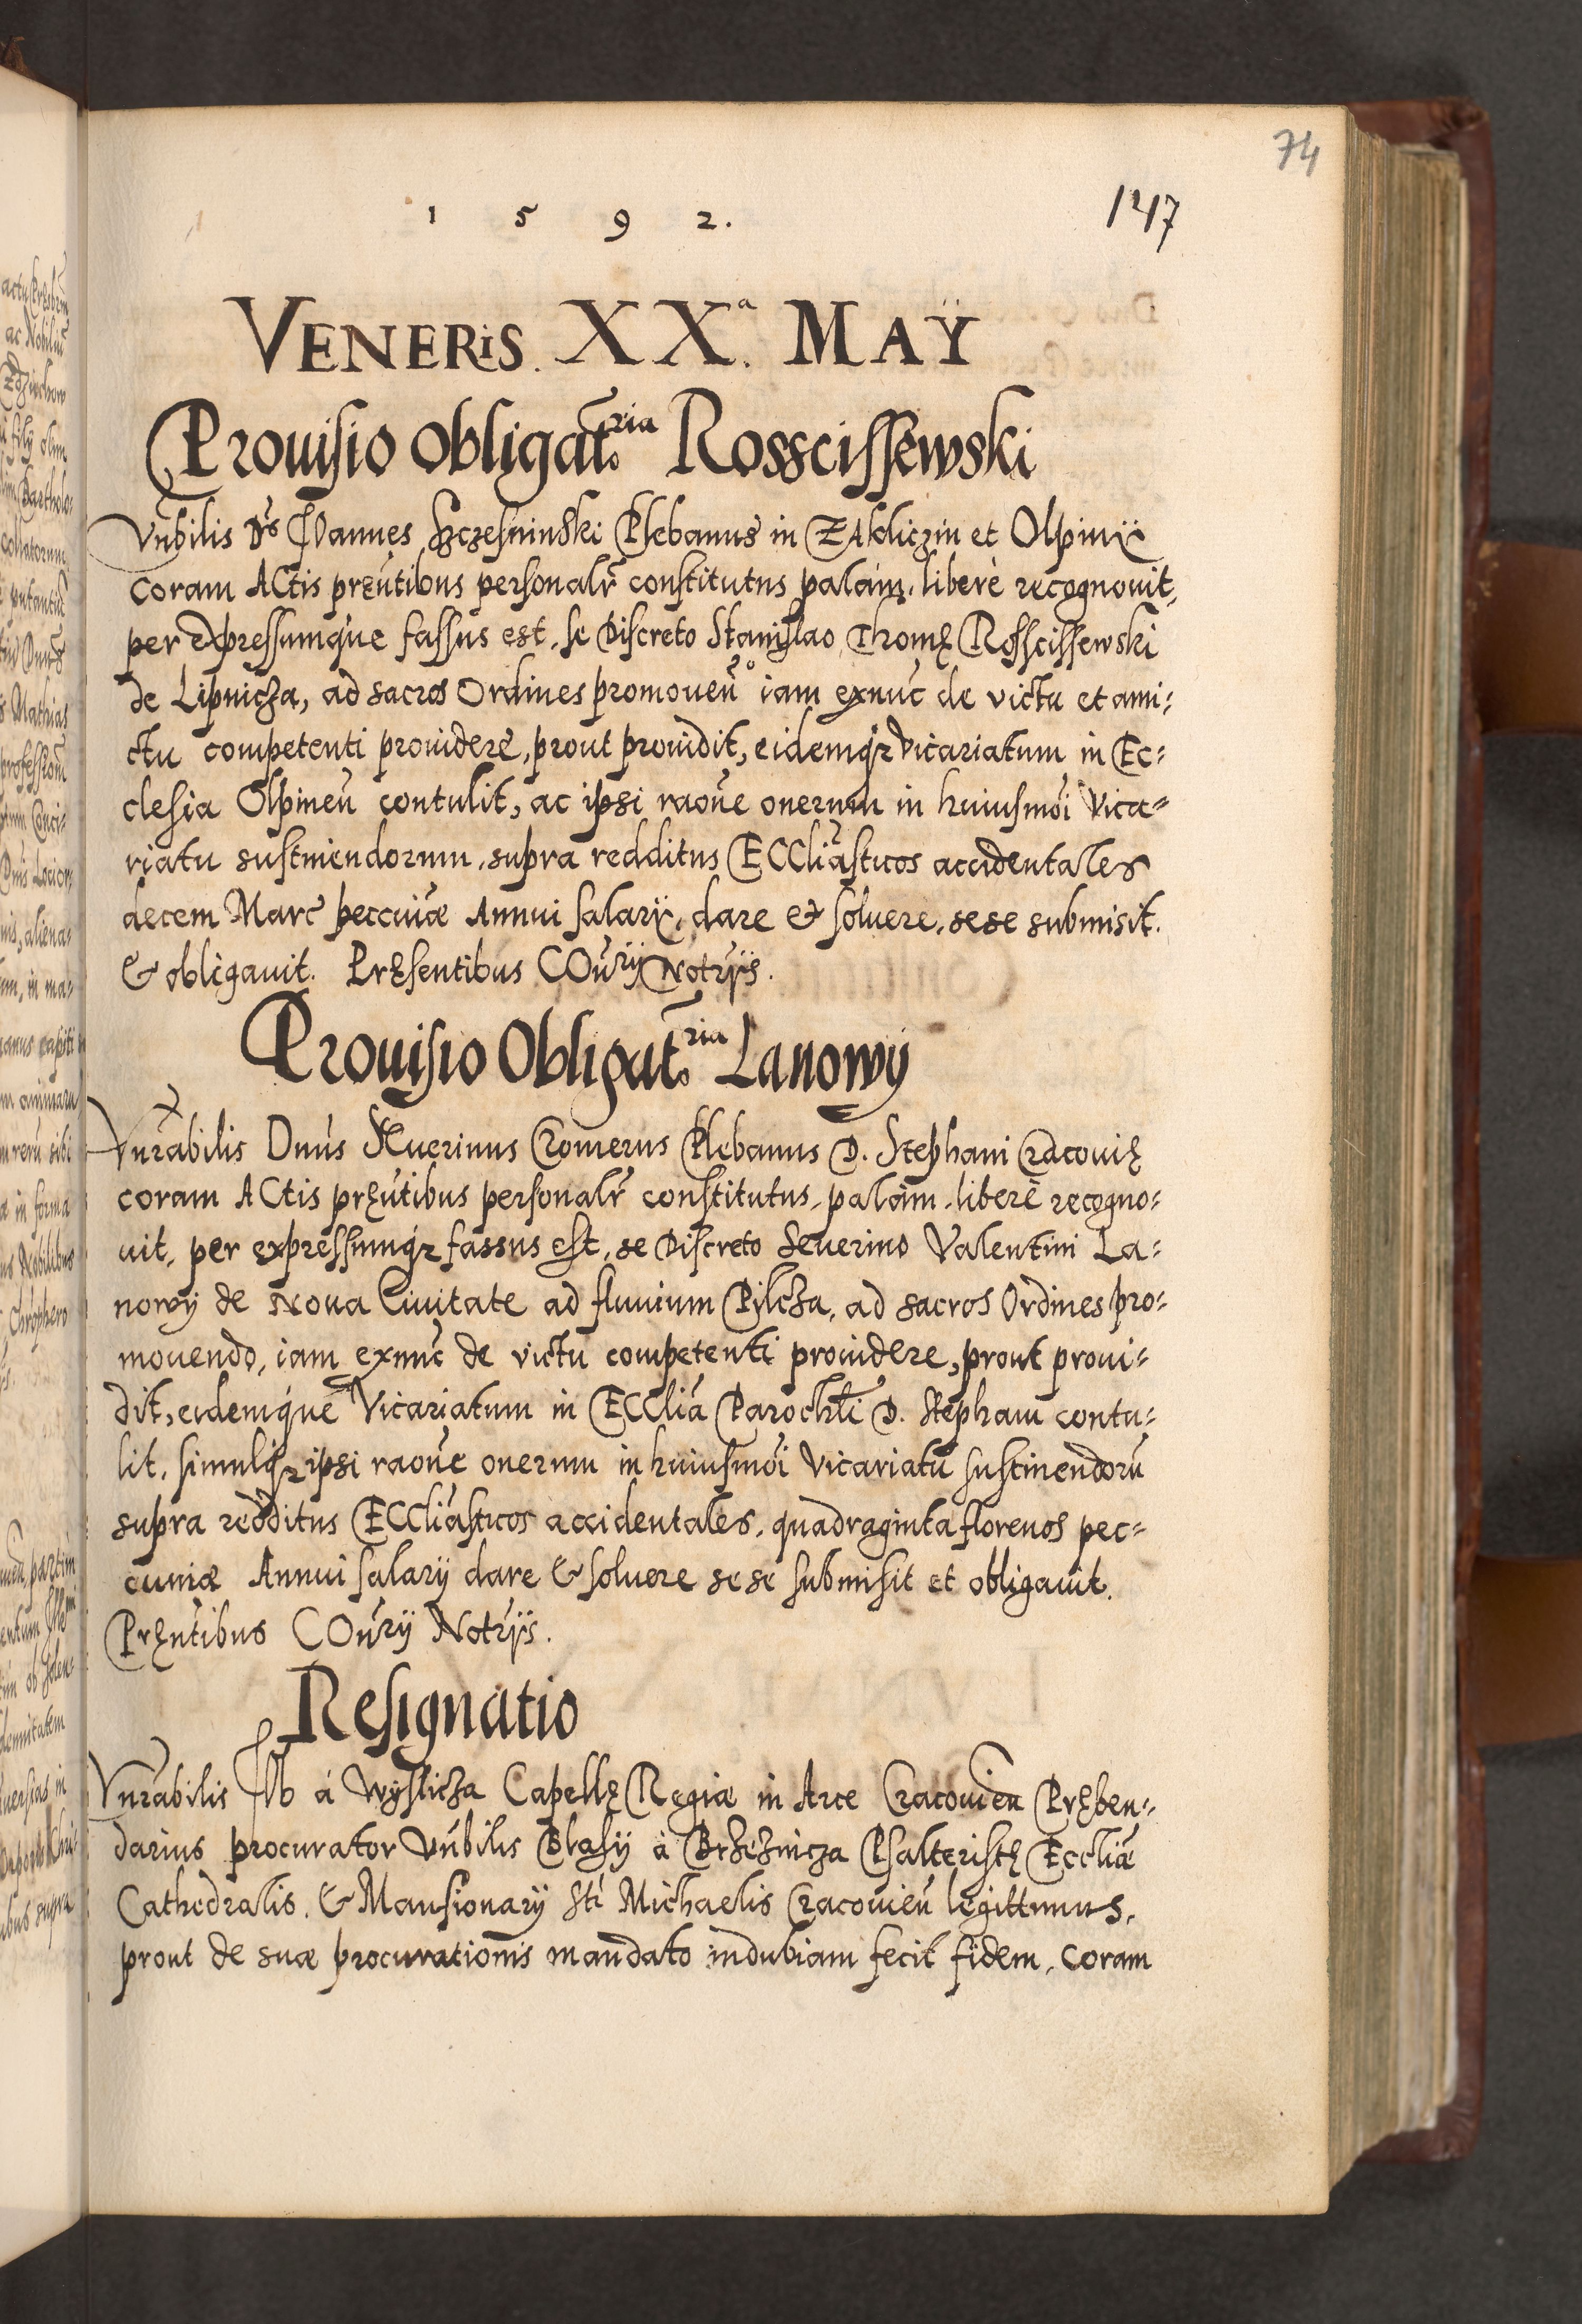 74
1592.
147
VENERIS. XX.ª MAÿ
Prouisio Obligat.ria Rossscissewski
Vnbilis Ds Joannes Szczesninski Plebanus in Zakliczin et Olpinÿ
coram ACtis pręntibus personalr constitutus palàm, liberè recognouit,
per expressumque fassus est, se Discreto Stanislao Thomę Rossscissewski
de Lipnicza, ad sacros Ordines promouen° iam exnuc de victu et ami=
ctu competenti prouidere, prout prouidit, eidemq; Vicariatum in Ec=
clesia Olpinen contulit, ac ipsi raone onerum in huiusmoi Vica=
riatu sustinendorum, supra redditus ECCliasticos accidentales
decem Marc peccuiæ Annui salarÿ, dare & soluere, sese submisit.
& obligauit. Pręsentibus COnrij Notrijs.
Prouisio Obligat.ria Lanowÿ
Vnrabilis Dnus Seuerinus Cromerus Plebanus D. Stephani Cracouię
coram ACtis pręntibus personalr constitutus, palàm, liberè recogno=
uit, per expressumq; fassus est, se Discreto Seuerino Valentini La=
nowÿ de Noua Ciuitate ad fluuium Pilcza, ad sacros Ordines pro=
mouendo, iam exnuc de victu competenti prouidere, prout proui=
dit, eidemque Vicariatum in ECClia Parochli D. Stephani contu=
lit, simulq; ipsi raone onerum in huiusmoi Vicariatu sustinendoru
supra redditus ECCliasticos accidentales, quadraginta florenos pec=
cuniæ Annui salarÿ dare & soluere sese submisit et obligauit.
Pręntibus COnrij Notrijs.
Resignatio
Vnrabilis à Wÿslicza Capellę Regiæ in Arce Cracouien Pręben=
darius procurator Vnbilis Blasÿ à Brzeznicza Psalteristę Eccliæ
Cathedralis, & Mansionarÿ Sti Michaelis Cracouien legittimus,
prout de suæ procurationis mandato indubiam fecit fidem, coram